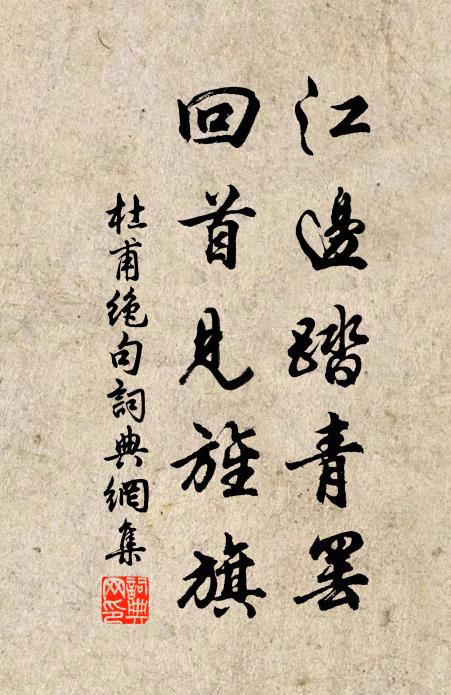 江邊踏青罢
回首見旌旗
杜甫绝句詞典網集
詞典
网印